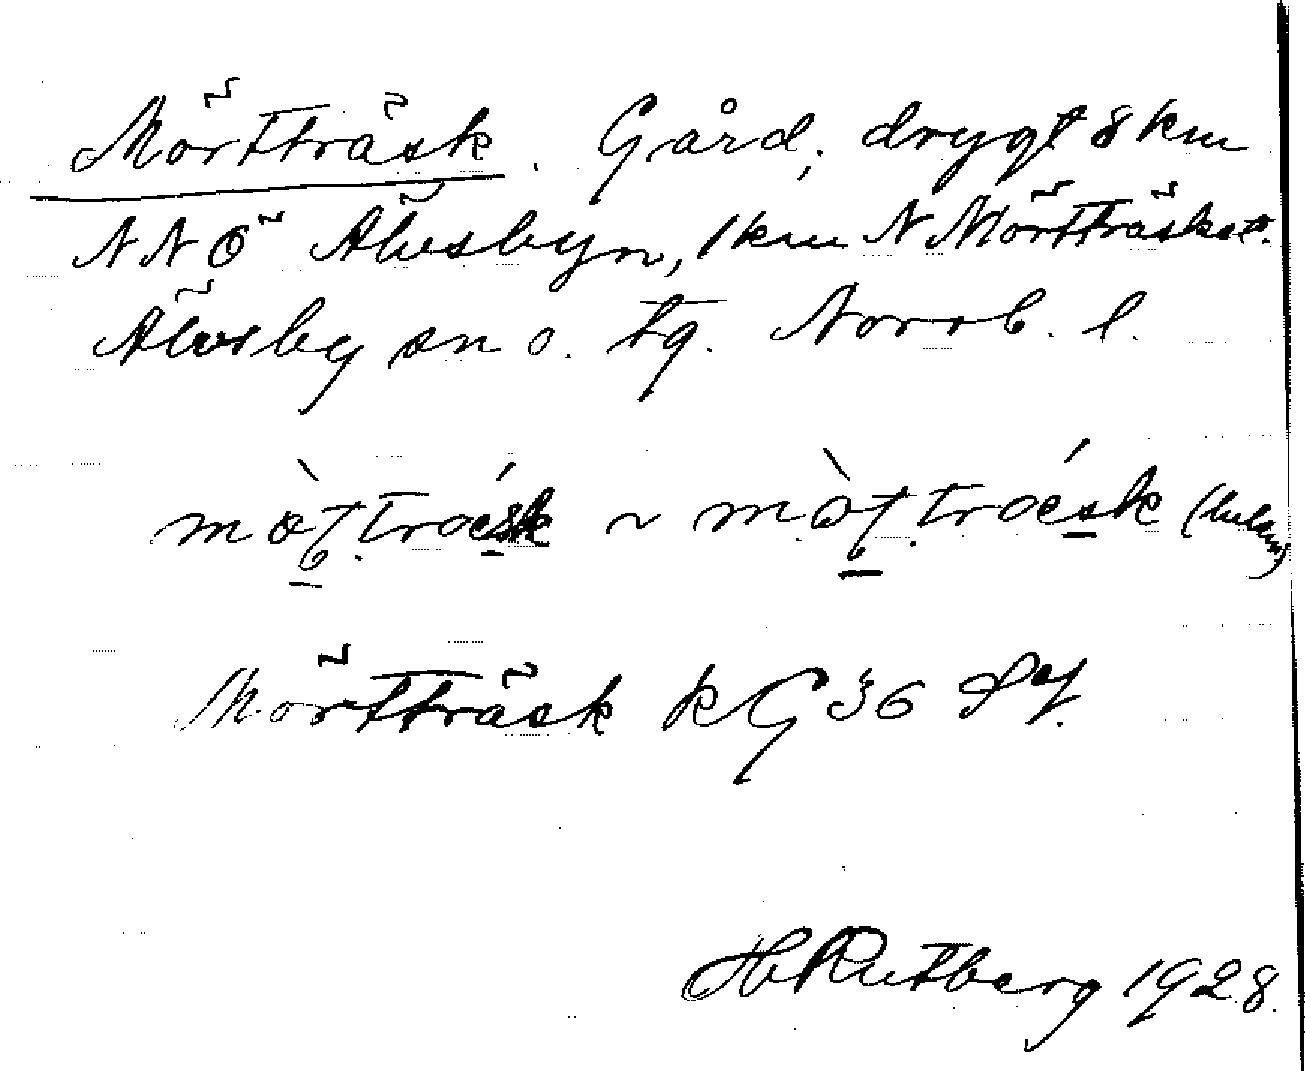 Mörtträsk. Gård, drygt 8 km
NNÖ Älvsbyn, 1 km N Mörtträsket.
Älvsby sn o. tg. Norrb. l.
mòʈtræsk ~ mòʈtræsk
Mörtträsk k G 36
H Rutberg 1928.